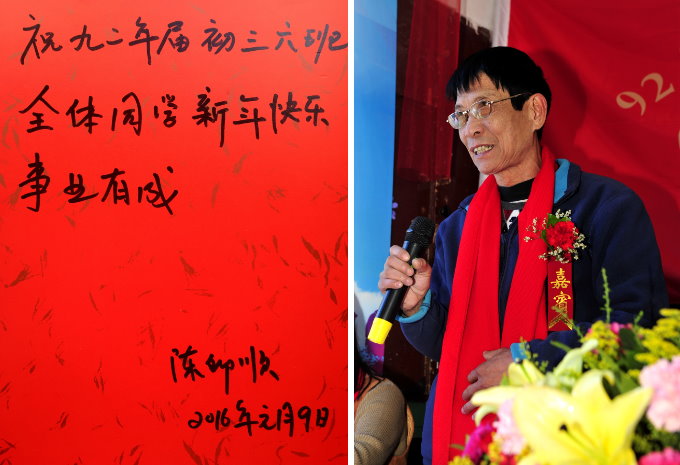 祝九二年届初三六班
全体同学新年快乐
事业有成
陈仰顺
2016年元月9日
92
嘉宾